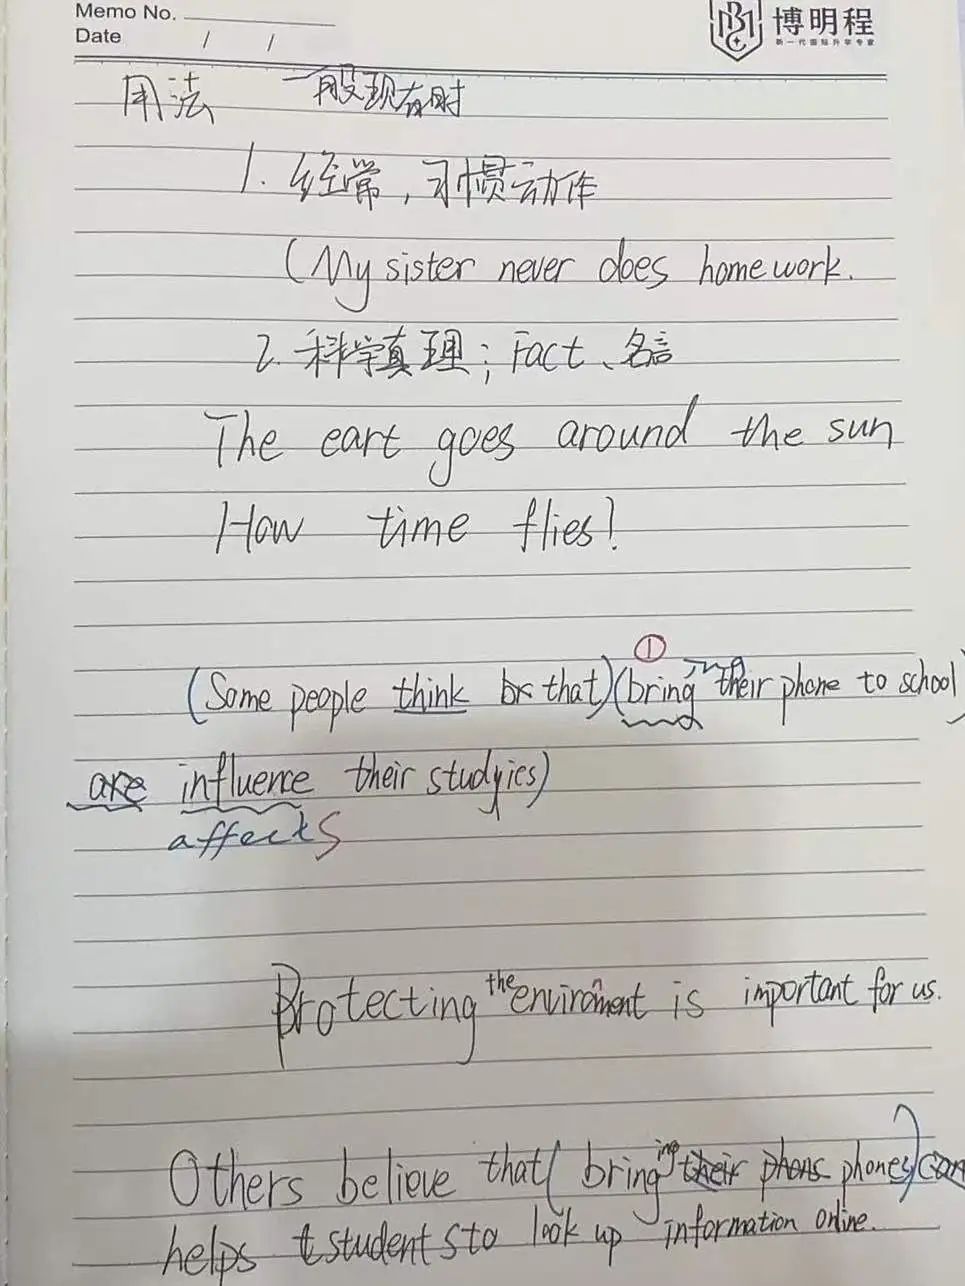 Memo No.
Date / /
博明程
新一代国际升学专家
用法 一般现在时
1. 经常，习惯动作
(My sister never does homework.
2. 科学真理；Fact、名言
The eart goes around the sun
How time flies!
①
(Some people think that) (bringing their phone to school)
are influence their studyies)
affects
Protecting the enviroment is important for us.
Others believe that (bringing their phones phones) can
helps students to look up information online.